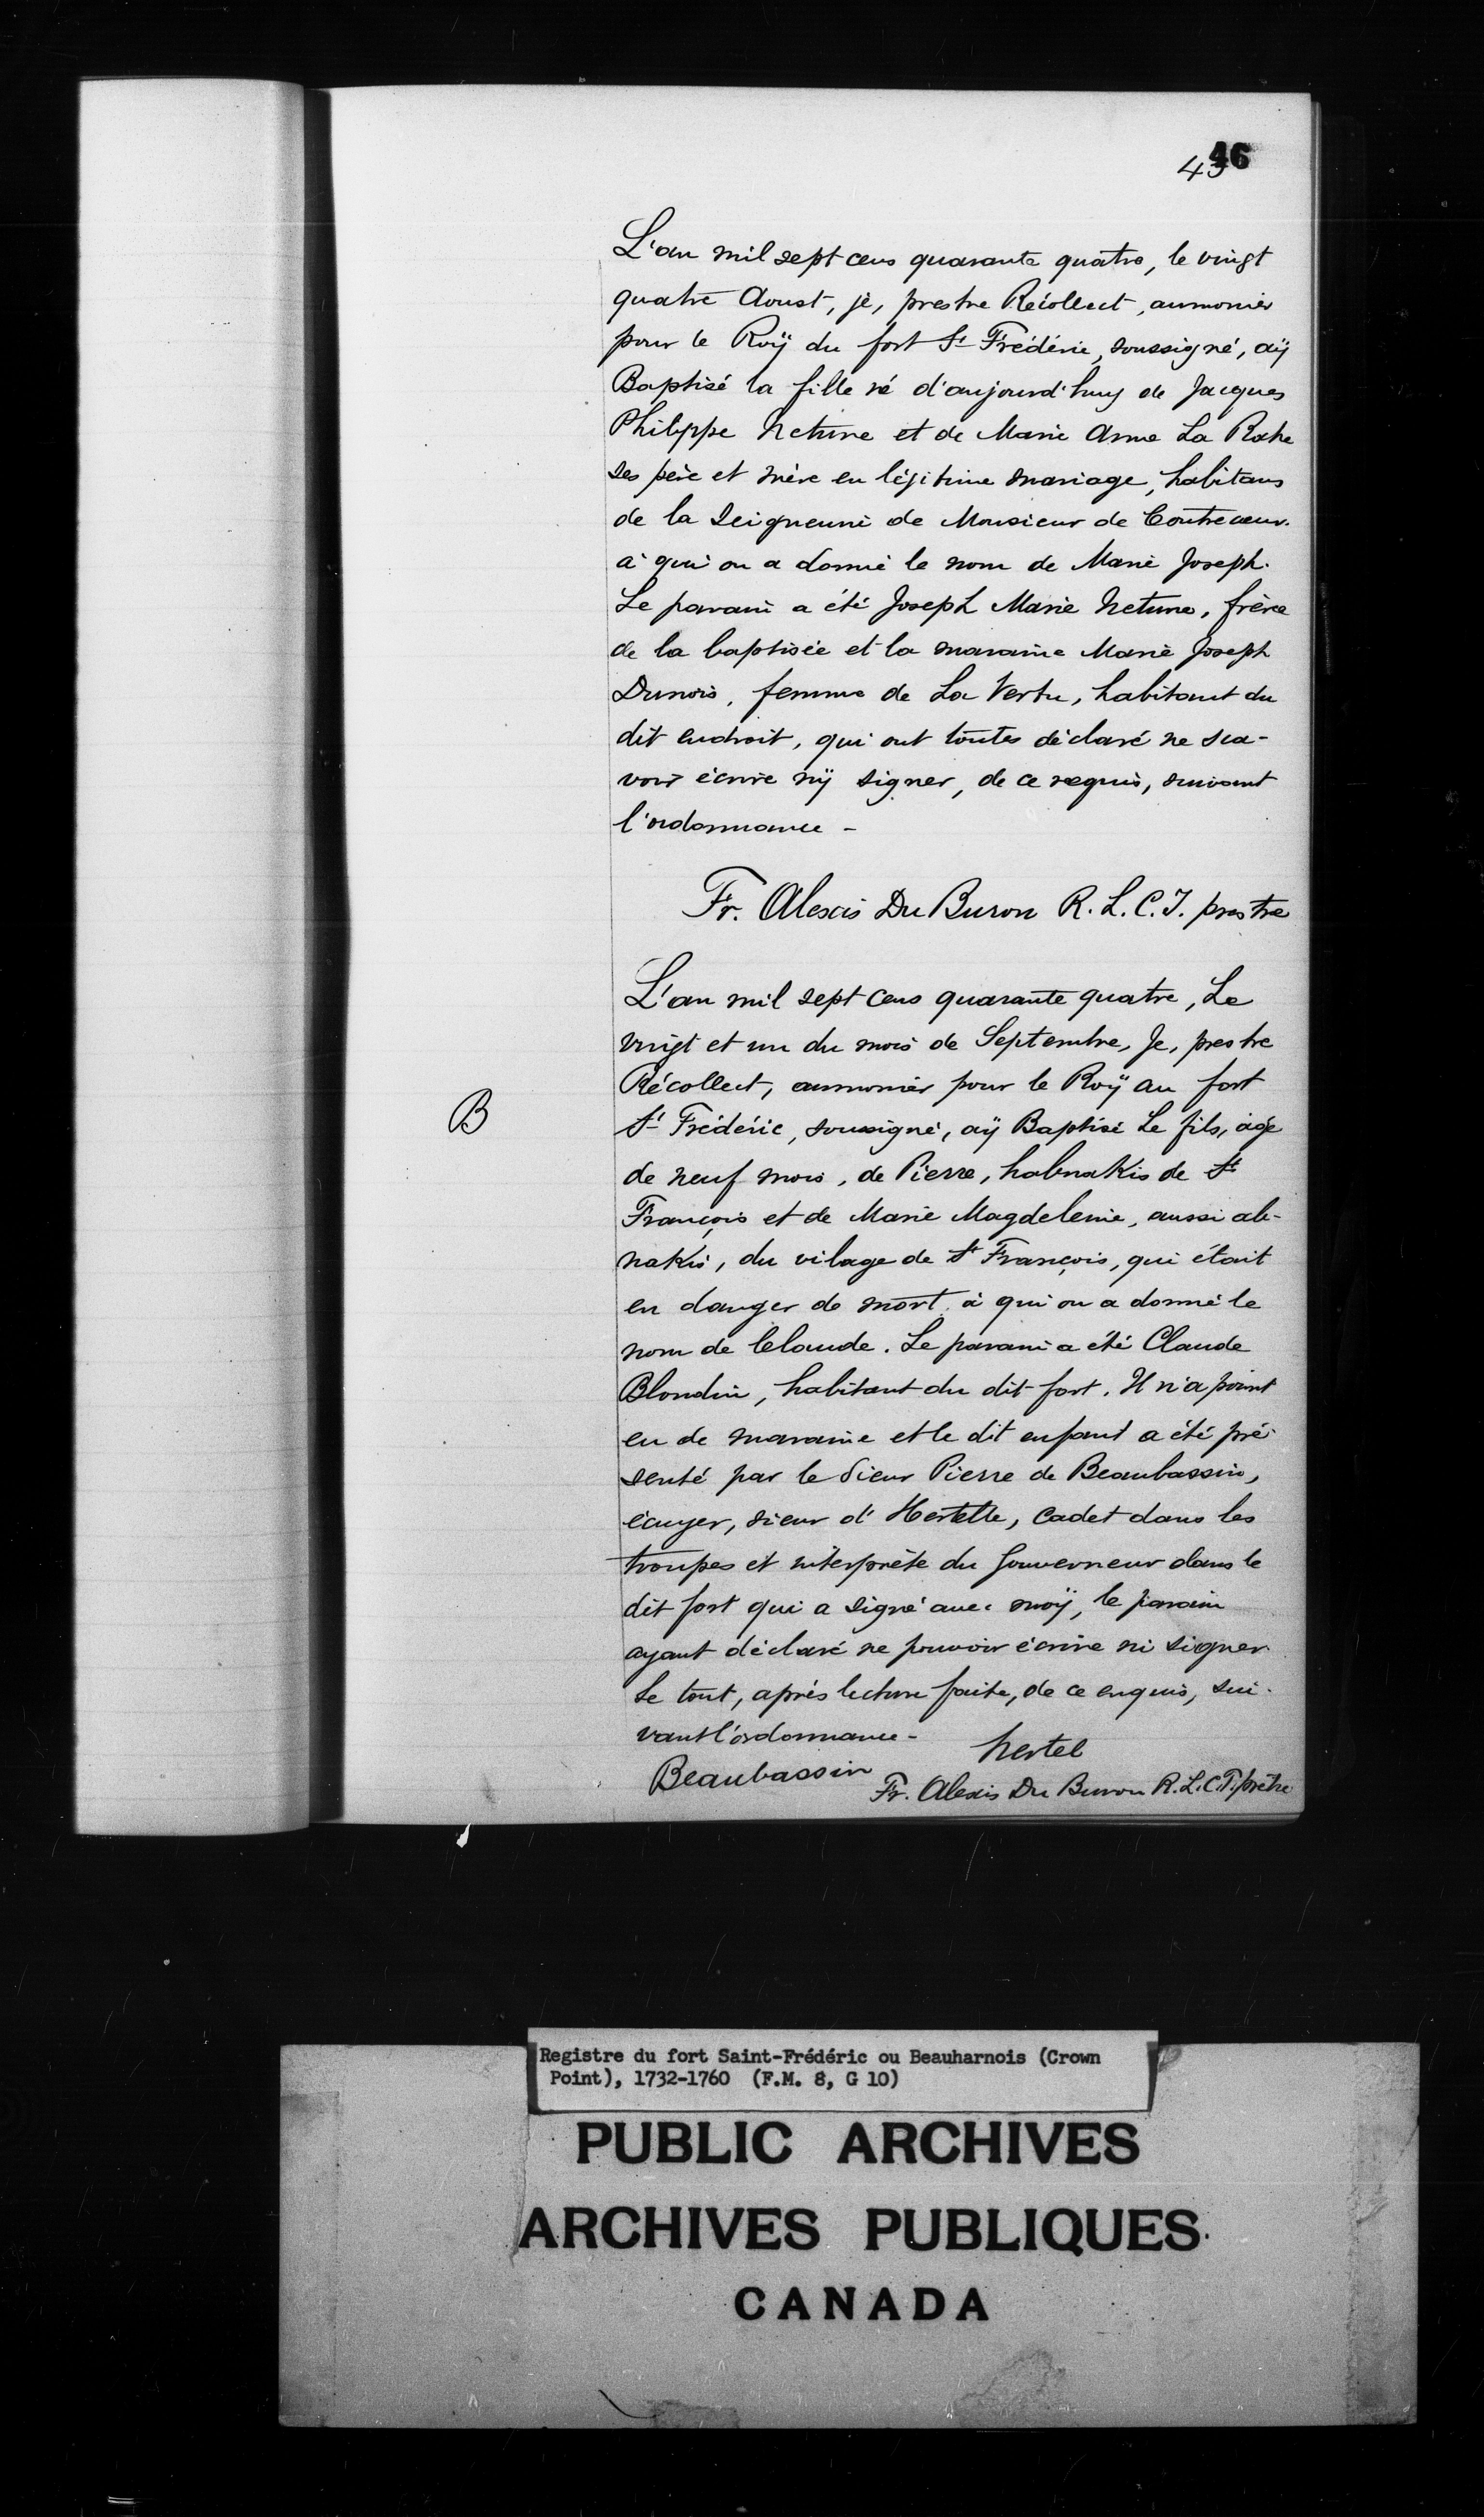 46
45
L'an mil sept cens quarante quatre, le vingt
quatre Aoust, je, prestre Récollect, aumonier
pour le Roÿ du fort St Frédéric, soussigné, aÿ
Baptisé la fille né d'aujourd'huy de Jacques
Philippe Neture et de Marie Anne La Roche
ses père et mère en légitime mariage, habitans
de la Seigneurie de Monsieur de Contrecœur.
à qui on a donné le nom de Marie Joseph.
Le parain a été Joseph Marie Neture, frère
de la baptisée et la maraine Marie Joseph
Dunois, femme de La Vertu, habitant du
dit endroit, qui ont toutes déclaré ne sca-
voir écrire nÿ signer, de ce requis, suivant
l'ordonnance -
Fr. Alexis Du Buron R. L. C. T. prestre
L'an mil sept cens quarante quatre, Le
vingt et un du mois de Septembre, Je, prestre
Récollect, aumonier pour le Roÿ au fort
B
St Frédéric, soussigné, aÿ Baptisé Le fils, agé
de neuf mois, de Pierre, habnakis de St
François et de Marie Magdeleine, aussi ab-
nakis, du vilage de St François, qui était
en danger de mort à qui on a donné le
nom de Claude. Le parain a été Claude
Blondin, habitant du dit fort. Il n'a point
eu de maraine et le dit enfant a été pré-
senté par le Sieur Pierre de Beaubassin,
écuyer, sieur d'Hertelle, cadet dans les
troupes et interprète du Gouverneur dans le
dit fort qui a signé avec moÿ, le parain
ayant déclaré ne pouvoir écrire ni signer
le tout, après lecture faite, de ce enquis, sui-
vant l'ordonnance -
hertel
Beaubassin
Fr. Alexis Du Buron R. L. C. T. prêtre
Registre du fort Saint-Frédéric ou Beauharnois (Crown
Point), 1732-1760 (F.M. 8, G 10)
PUBLIC ARCHIVES
ARCHIVES PUBLIQUES
CANADA